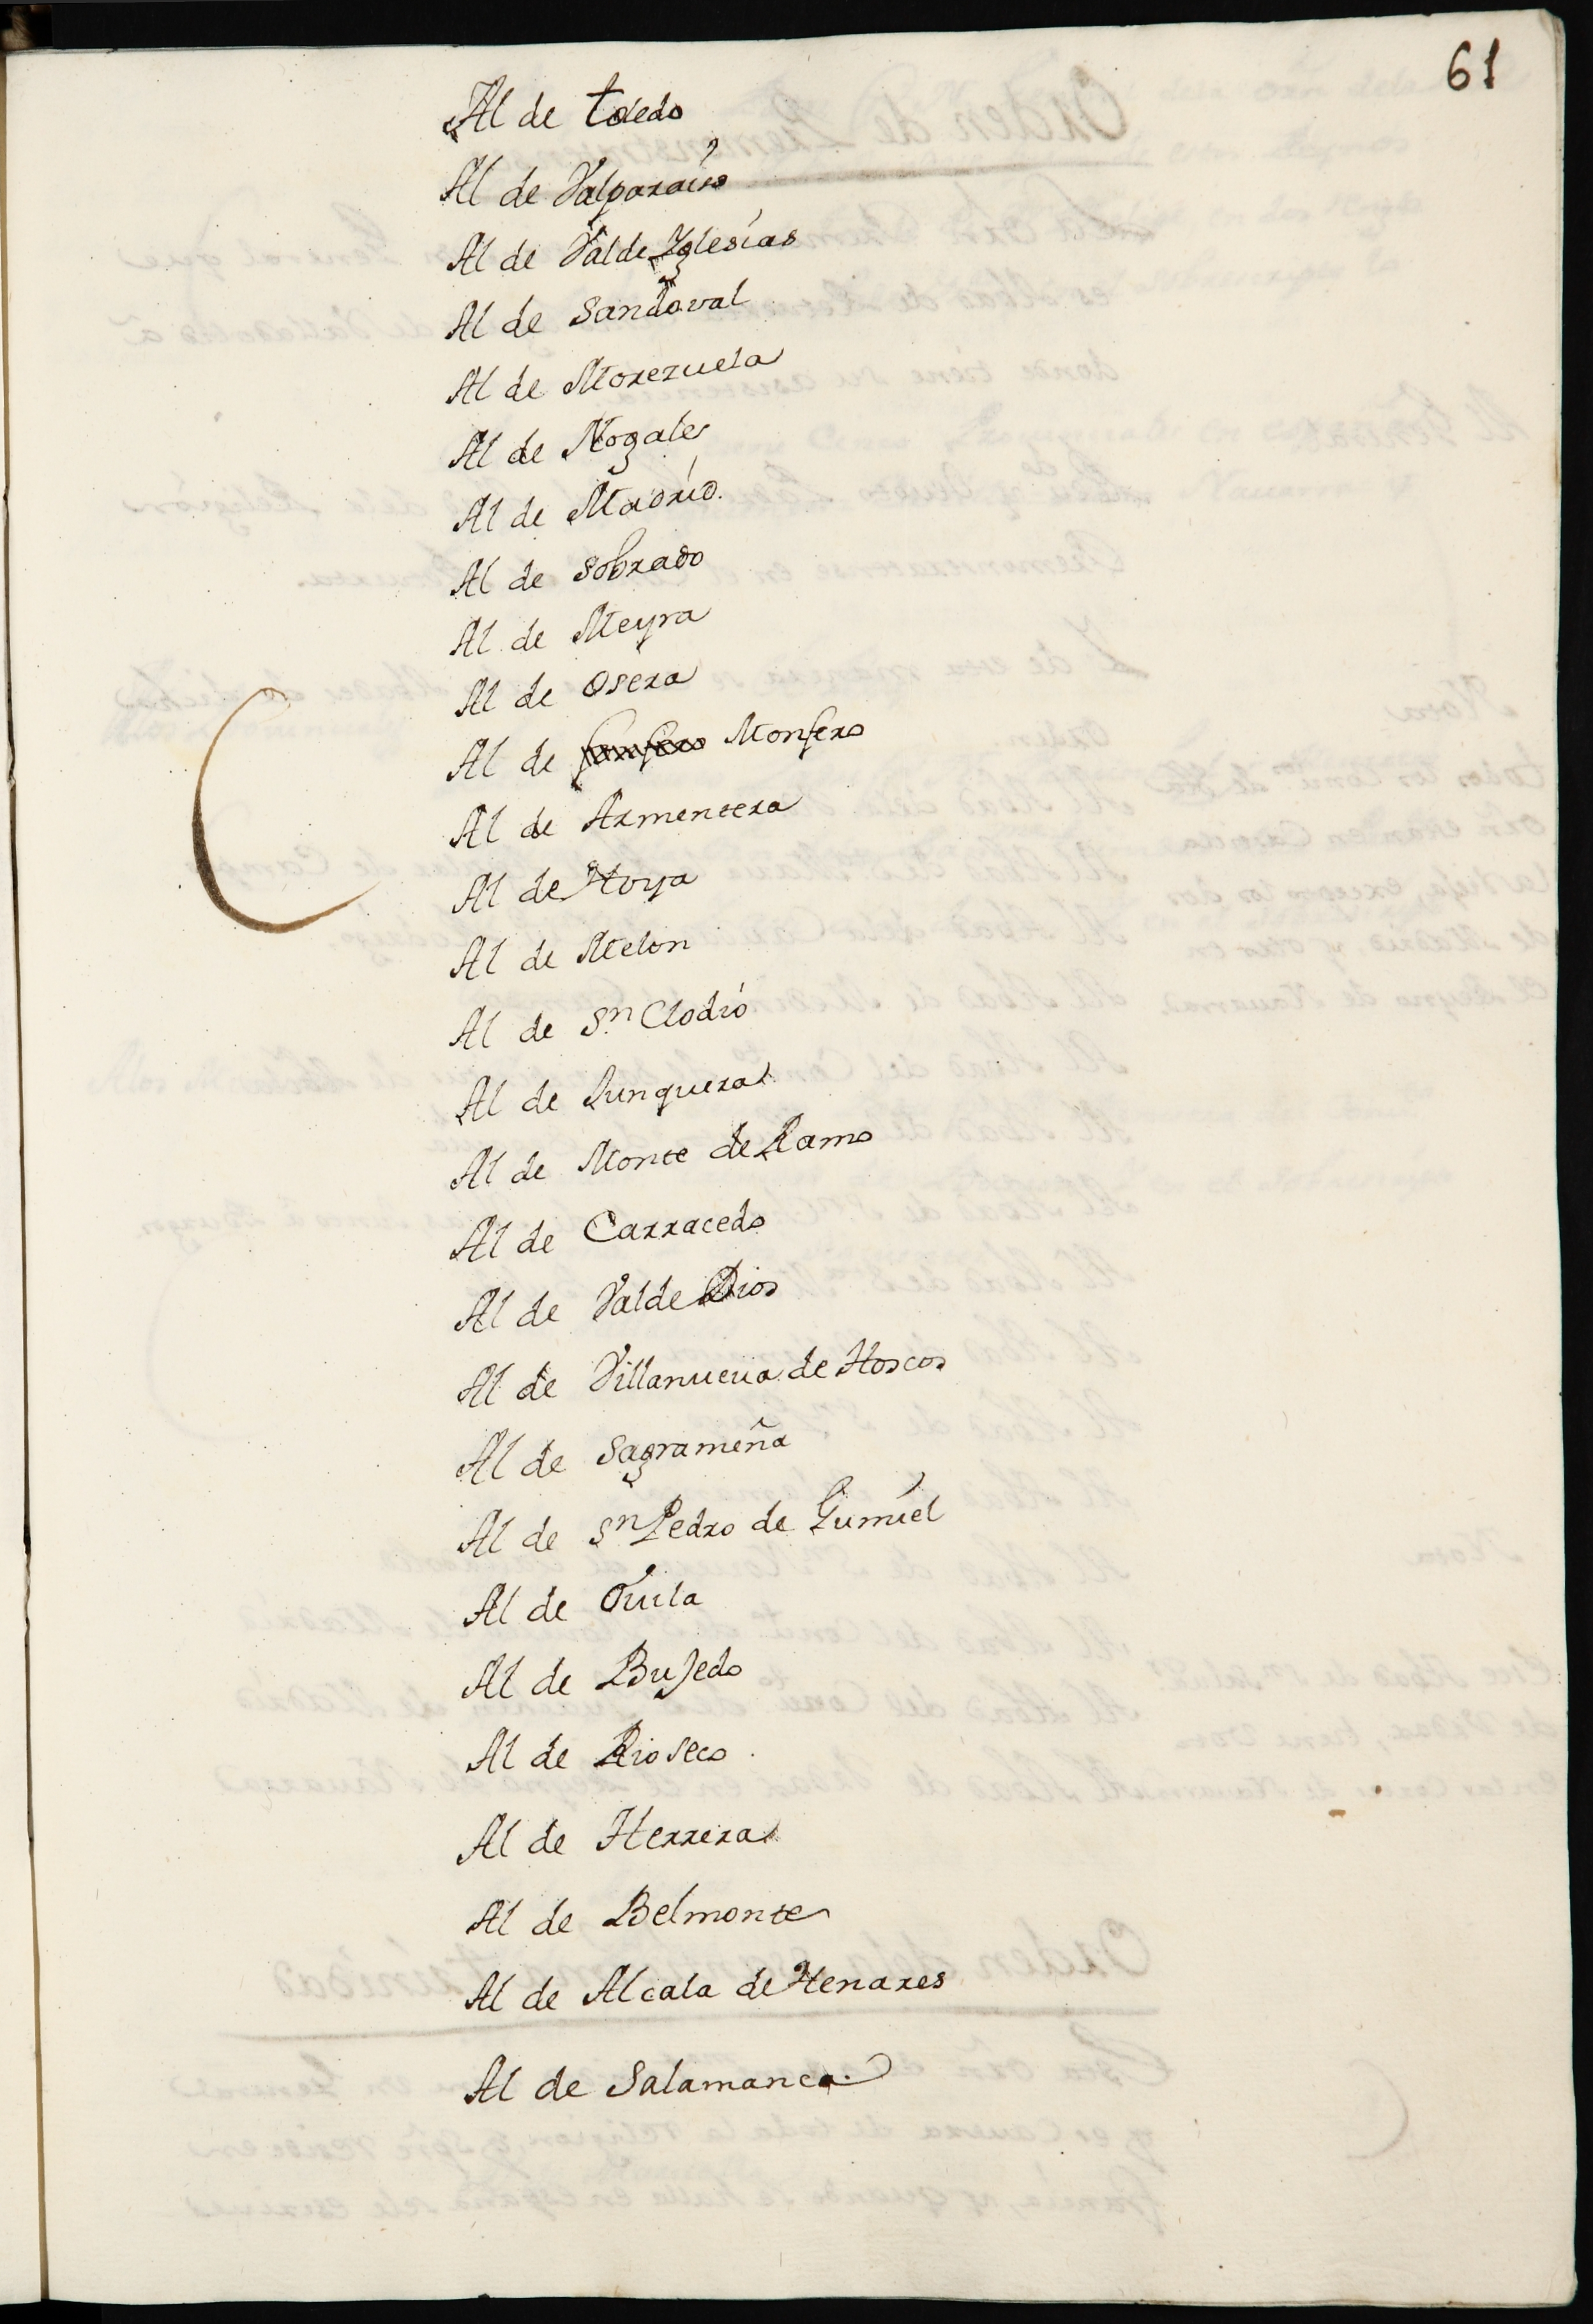 61
Al de toledo
Al de Valparaiso
Al de Valde Yglesias
Al de Sandoval
Al de Morezuela
Al de Nogales
Al de Madrid.
Al de Sobrado
Al de Meyra
Al de Osera
Al de Monfero
Al de Armentera
Al de Hoya
Al de Melon
Al de Sn. Clodio
Al de Junquera
Al de Monte de Ramo
Al de Carracedo
Al de Valde Dios
Al de Villanueua de Hoscos
Al de Sagrameña
Al de Sn. Pedro de Gumiel
Al de Ouila
Al de Bujedo
Al de Rioseco
Al de Herrera
Al de Belmonte
Al de Alcala de Henares
Al de Salamanca.